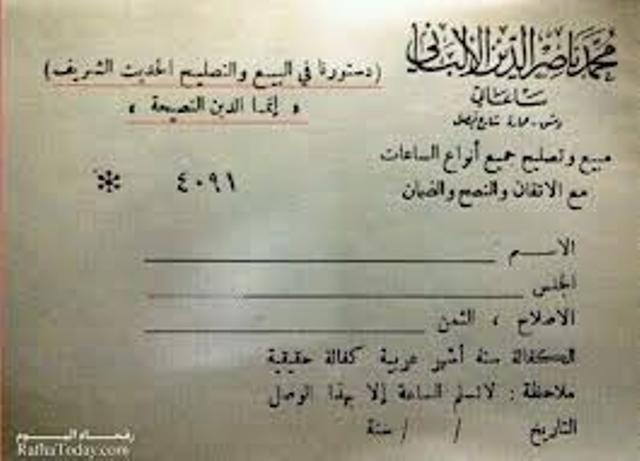 محمد ناصر الدين الألباني
ساعاتي
دمشق - عمارة شارع فيصل
( دستورنا في البيع والتصليح الحديث الشريف )
« إنما الدين النصيحة »
مبيع وتصليح جميع أنواع الساعات
مع الاتقان والنصح والضمان
* ٤٠٩١
الاسم
الجنس
الاصلاح ، الثمن
الكفالة ستة أشهر عربية كفالة حقيقية
ملاحظة : لا تسلم الساعة إلا بهذا الوصل
التاريخ / / سنة
رفحاء اليوم
RafhaToday.com